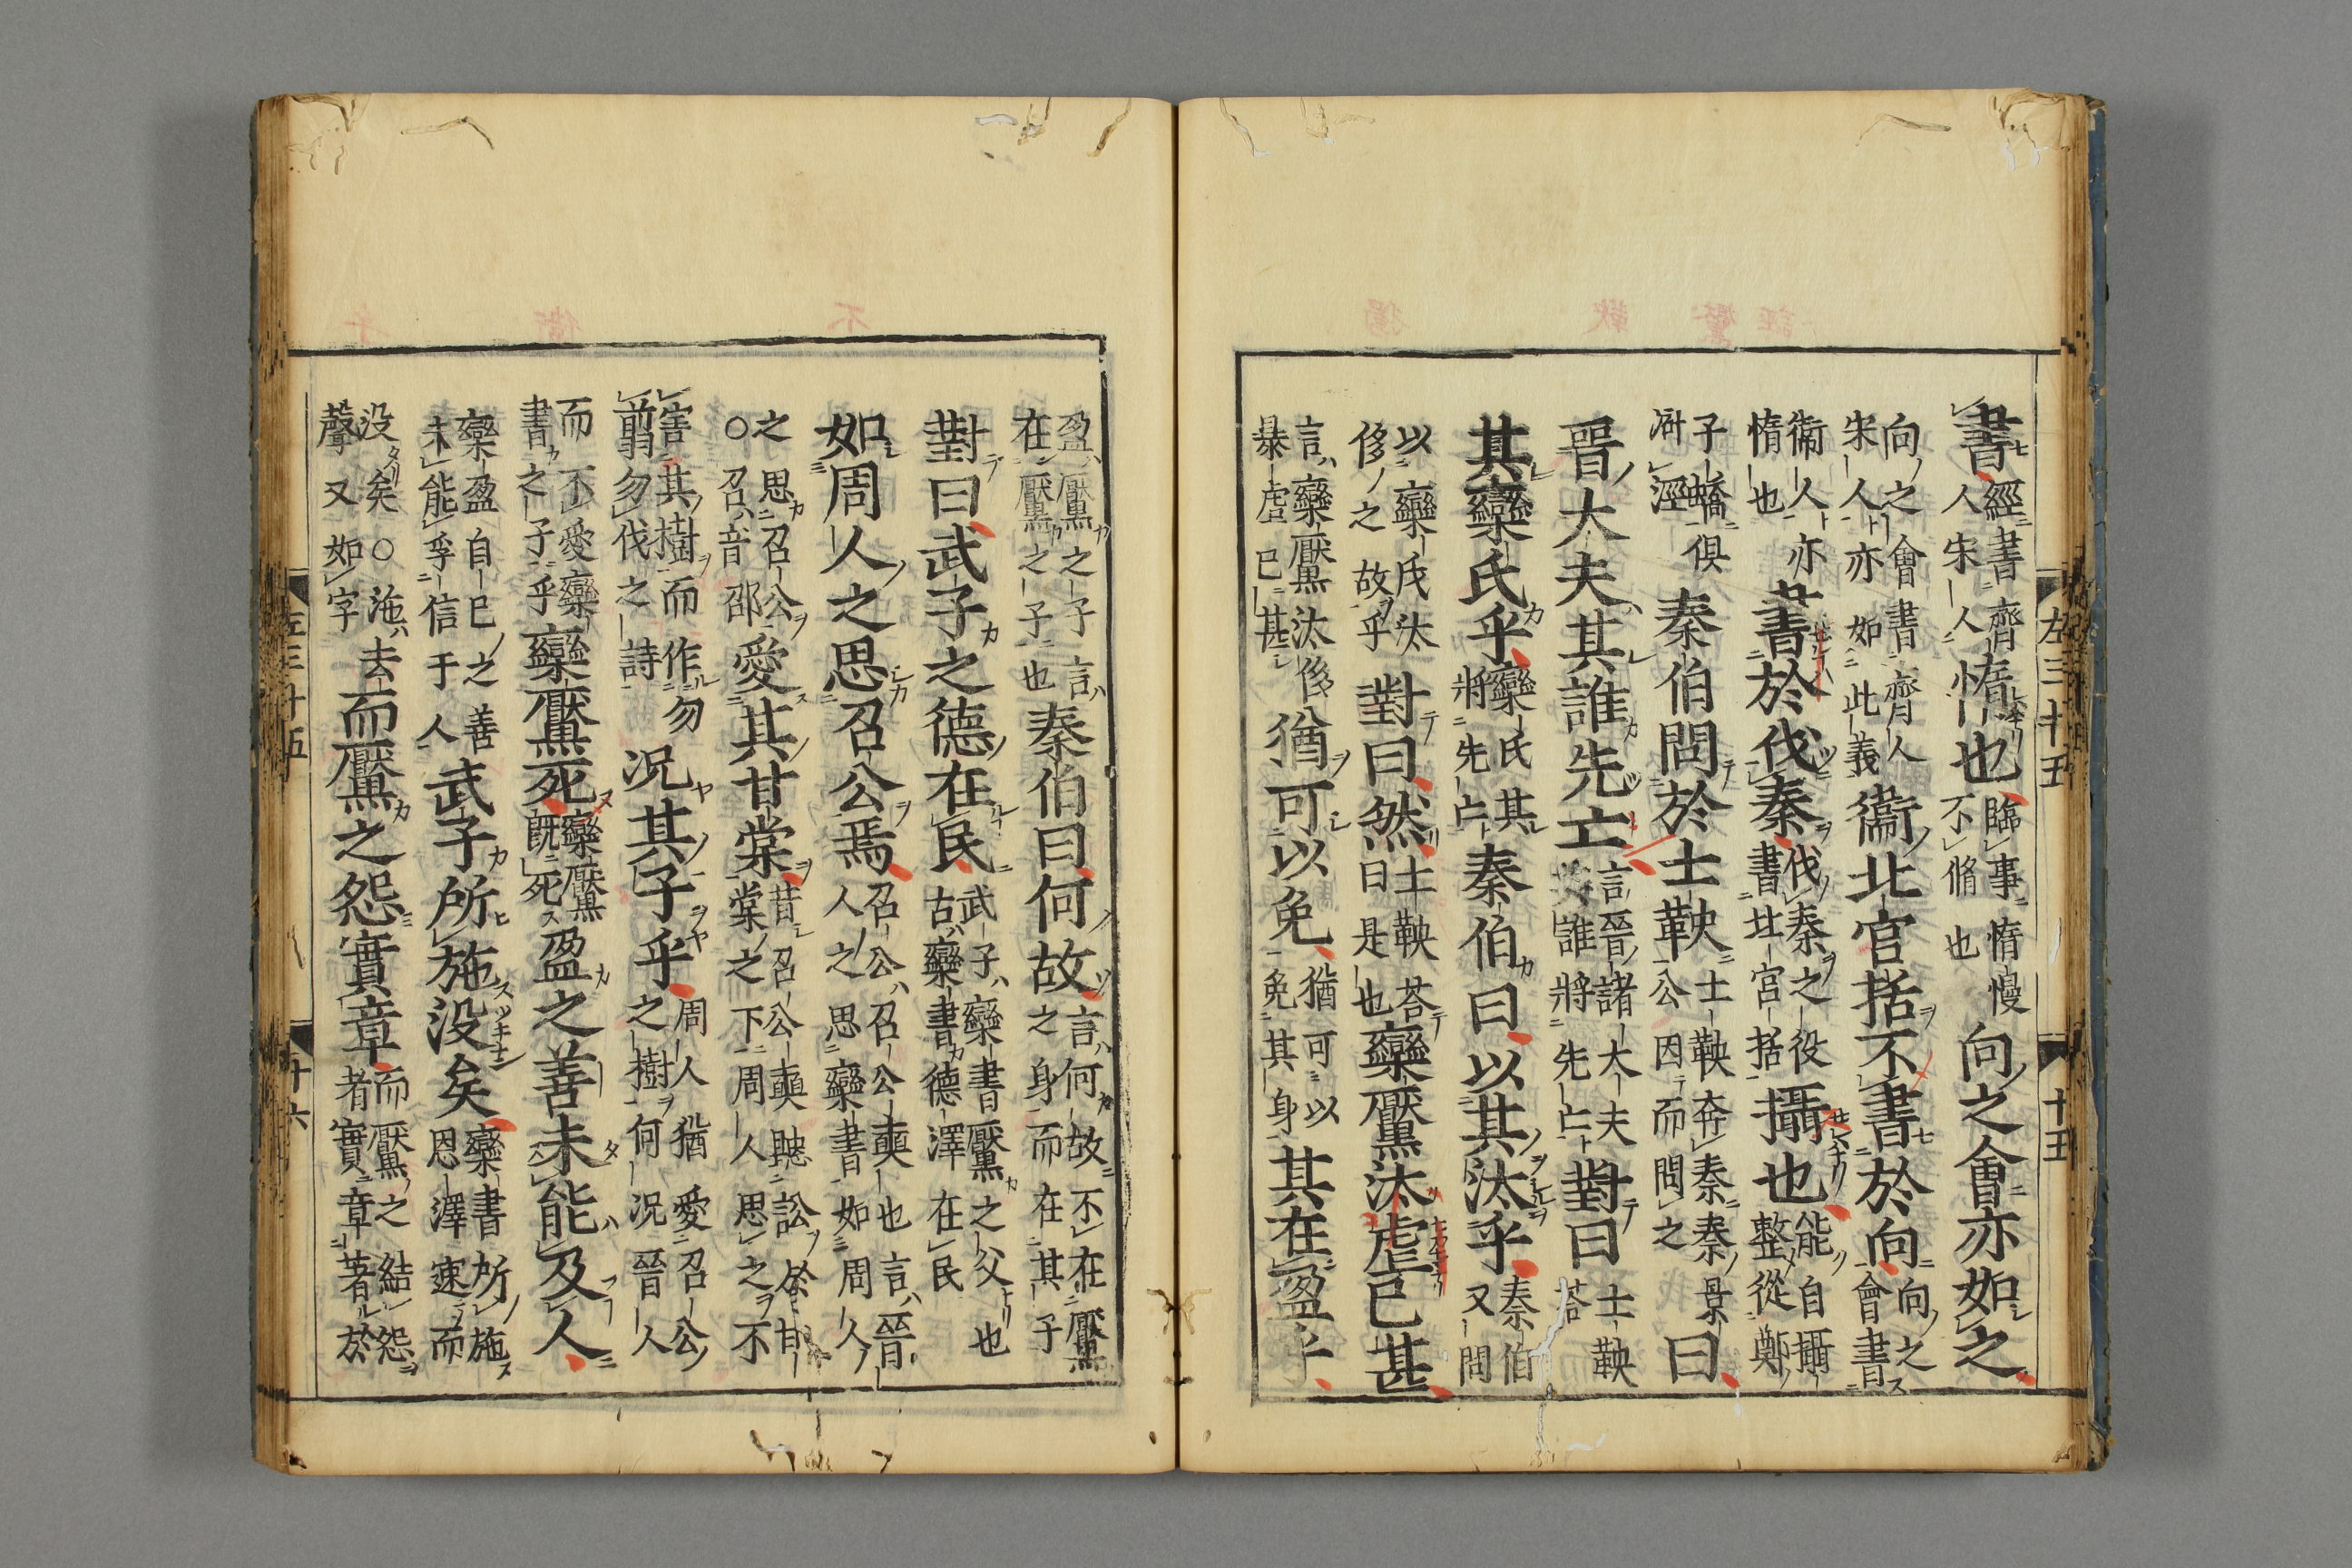 左三十五 十五
書經書齊人宋人惰也臨事惰慢不脩也向之會亦如之
向之會書齊人宋人亦如此義衞北官括不書於向向之會書
衞人亦惰也書於伐秦伐秦之役書北宮括攝也能自攝整從鄭
子蟜俱濟涇秦伯問於士鞅士鞅奔秦秦景公因而問之曰
晉大夫其誰先亡言晉諸大夫誰將先亡對曰士鞅荅
其欒氏乎欒氏其將先亡秦伯曰以其汰乎秦伯又問
以欒氏汰侈之故乎對曰然士鞅荅曰是也欒黶汰虐已甚
言欒黶汰侈暴虐已甚猶可以免猶可以免其身其在盈乎
盈黶之子言在黶之子也秦伯曰何故言何故不在黶之身而在其子
對曰武子之德在民武子欒書黶之父也古欒書德澤在民
如周人之思召公焉召公召公奭也言晉人之思欒書如周人
之思召公○召音邵愛其甘棠昔召公奭聽訟於甘棠之下周人思之不
害其樹而作勿翦勿伐之詩况其子乎周人猶愛召公之樹何况晉人
而不愛欒書之子乎欒黶死欒黶既死盈之善未能及人
欒盈自已之善未能孚信于人武子所施没矣欒書所施恩澤速而
没矣○施去聲又如字而黶之怨實章而黶之結怨者實章著於
左三十五 十六